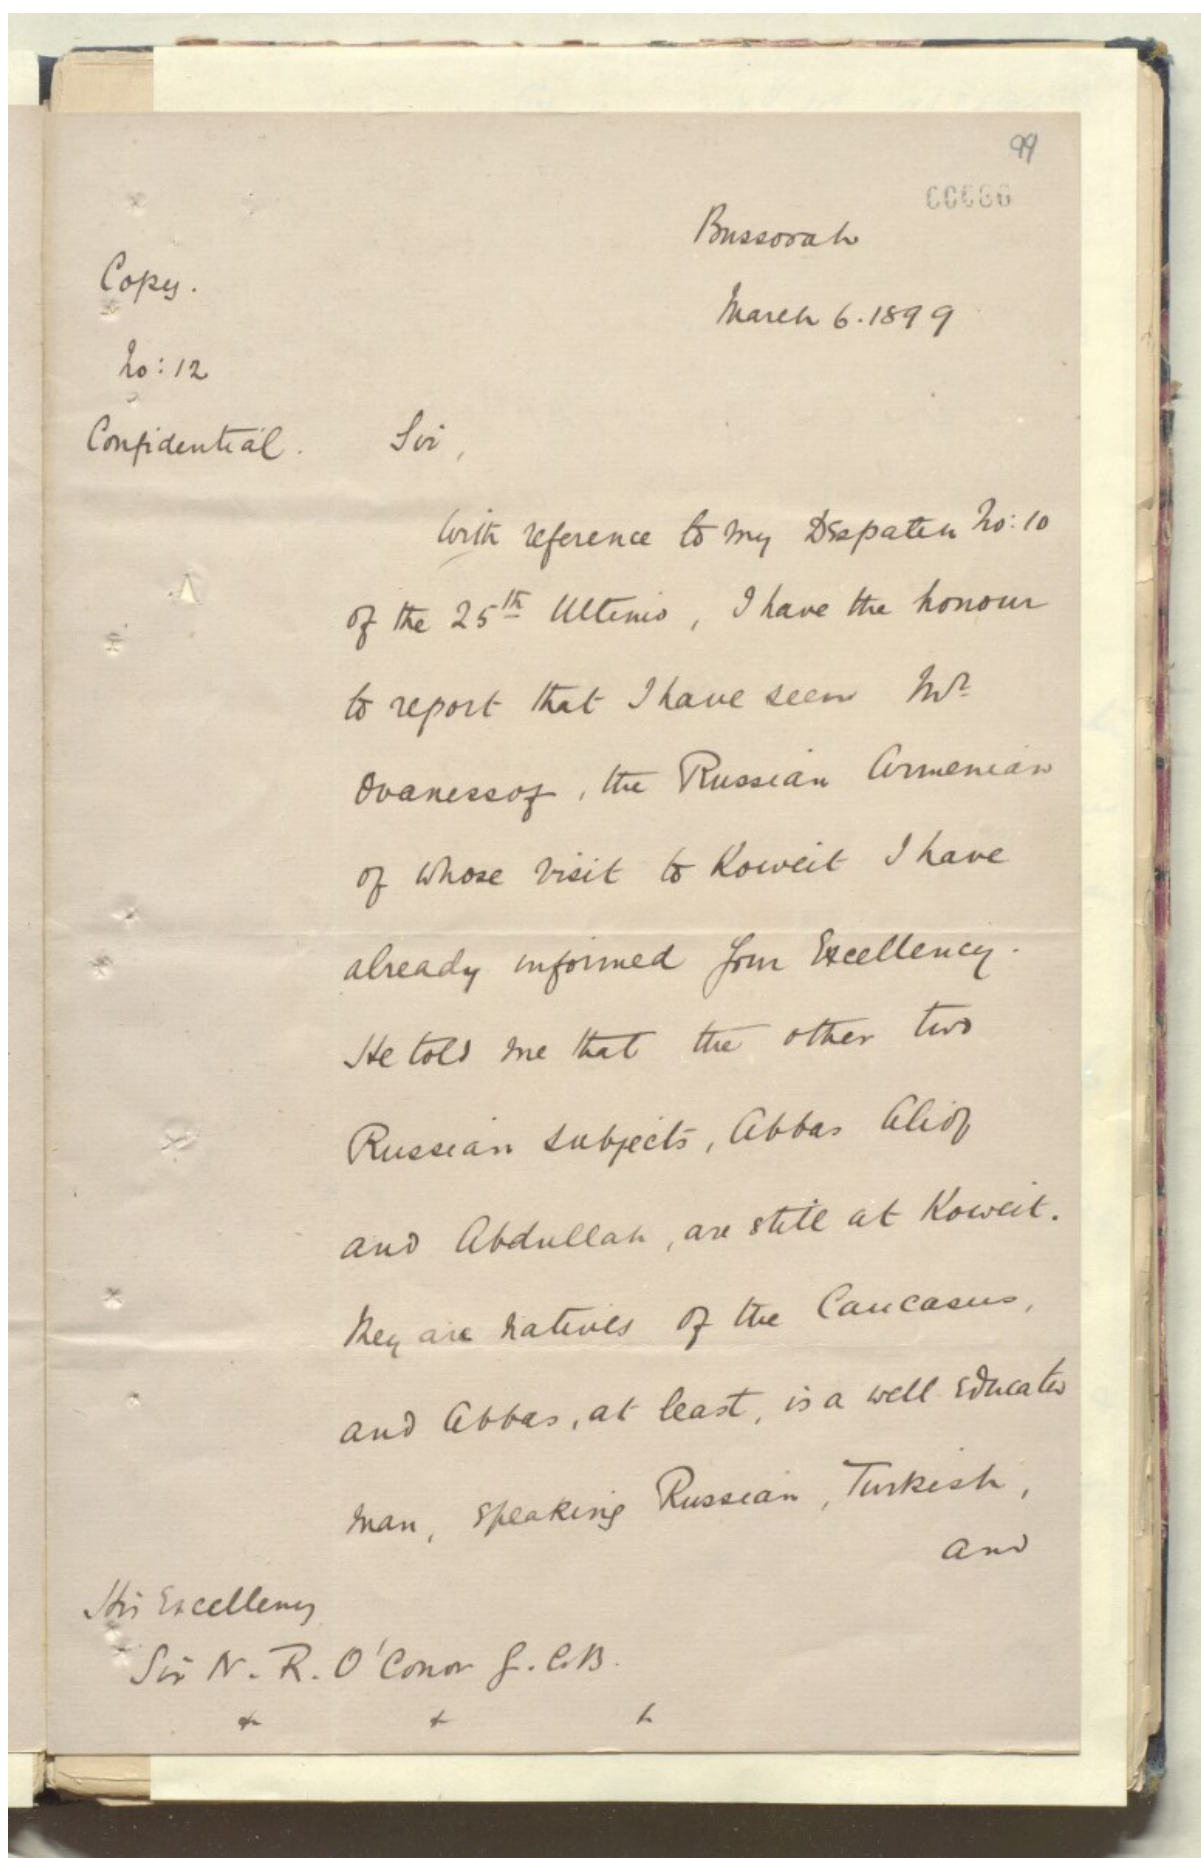 99
Bussorah
Copy.
March 6. 1899
No: 12
Confidential.
Sir,
With reference to my Despatch No: 10
of the 25th Ultimo, I have the honour
to report that I have seen Mr
Ovanessof, the Russian Armenian
of whose visit to Koweit I have
already informed Your Excellency.
He told me that the other two
Russian subjects, Abbas Aliof
and Abdullah, are still at Koweit.
They are natives of the Caucasus,
and Abbas, at least, is a well educated
man, speaking Russian, Turkish,
and
His Excellency
Sir N. R. O'Conor G.C.B.